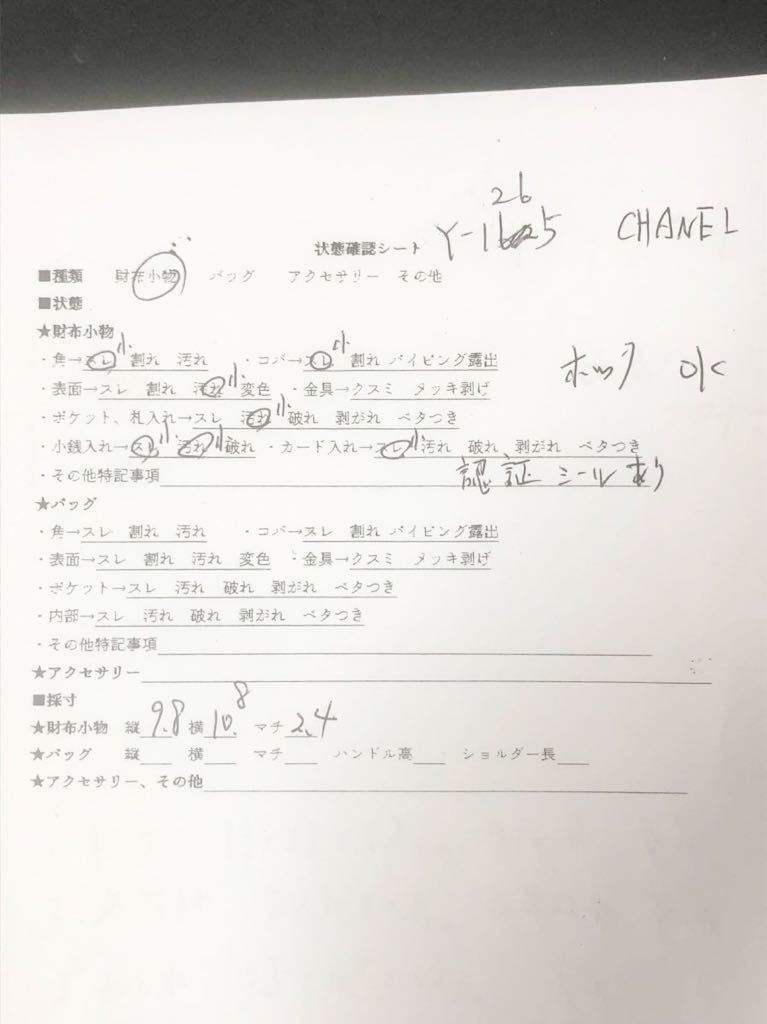 26
状態確認シート Y-1625 CHANEL
■種類 財布小物 バッグ アクセサリー その他
■状態
★財布小物
・角→スレ小 割れ 汚れ ・コバ→スレ小 割れ パイピング露出 ホック OK
・表面→スレ 割れ 汚れ小 変色 ・金具→クスミ メッキ剥げ
・ポケット、札入れ→スレ 汚れ小 破れ 剥がれ ベタつき
・小銭入れ→スレ小 汚れ小 破れ ・カード入れ→スレ小 汚れ 破れ 剥がれ ベタつき
・その他特記事項 認証シールあり
★バッグ
・角→スレ 割れ 汚れ ・コバ→スレ 割れ パイピング露出
・表面→スレ 割れ 汚れ 変色 ・金具→クスミ メッキ剥げ
・ポケット→スレ 汚れ 破れ 剥がれ ベタつき
・内部→スレ 汚れ 破れ 剥がれ ベタつき
・その他特記事項
★アクセサリー
■採寸
★財布小物 縦9.8 横10.8 マチ2.4
★バッグ 縦 横 マチ ハンドル高 ショルダー長
★アクセサリー、その他